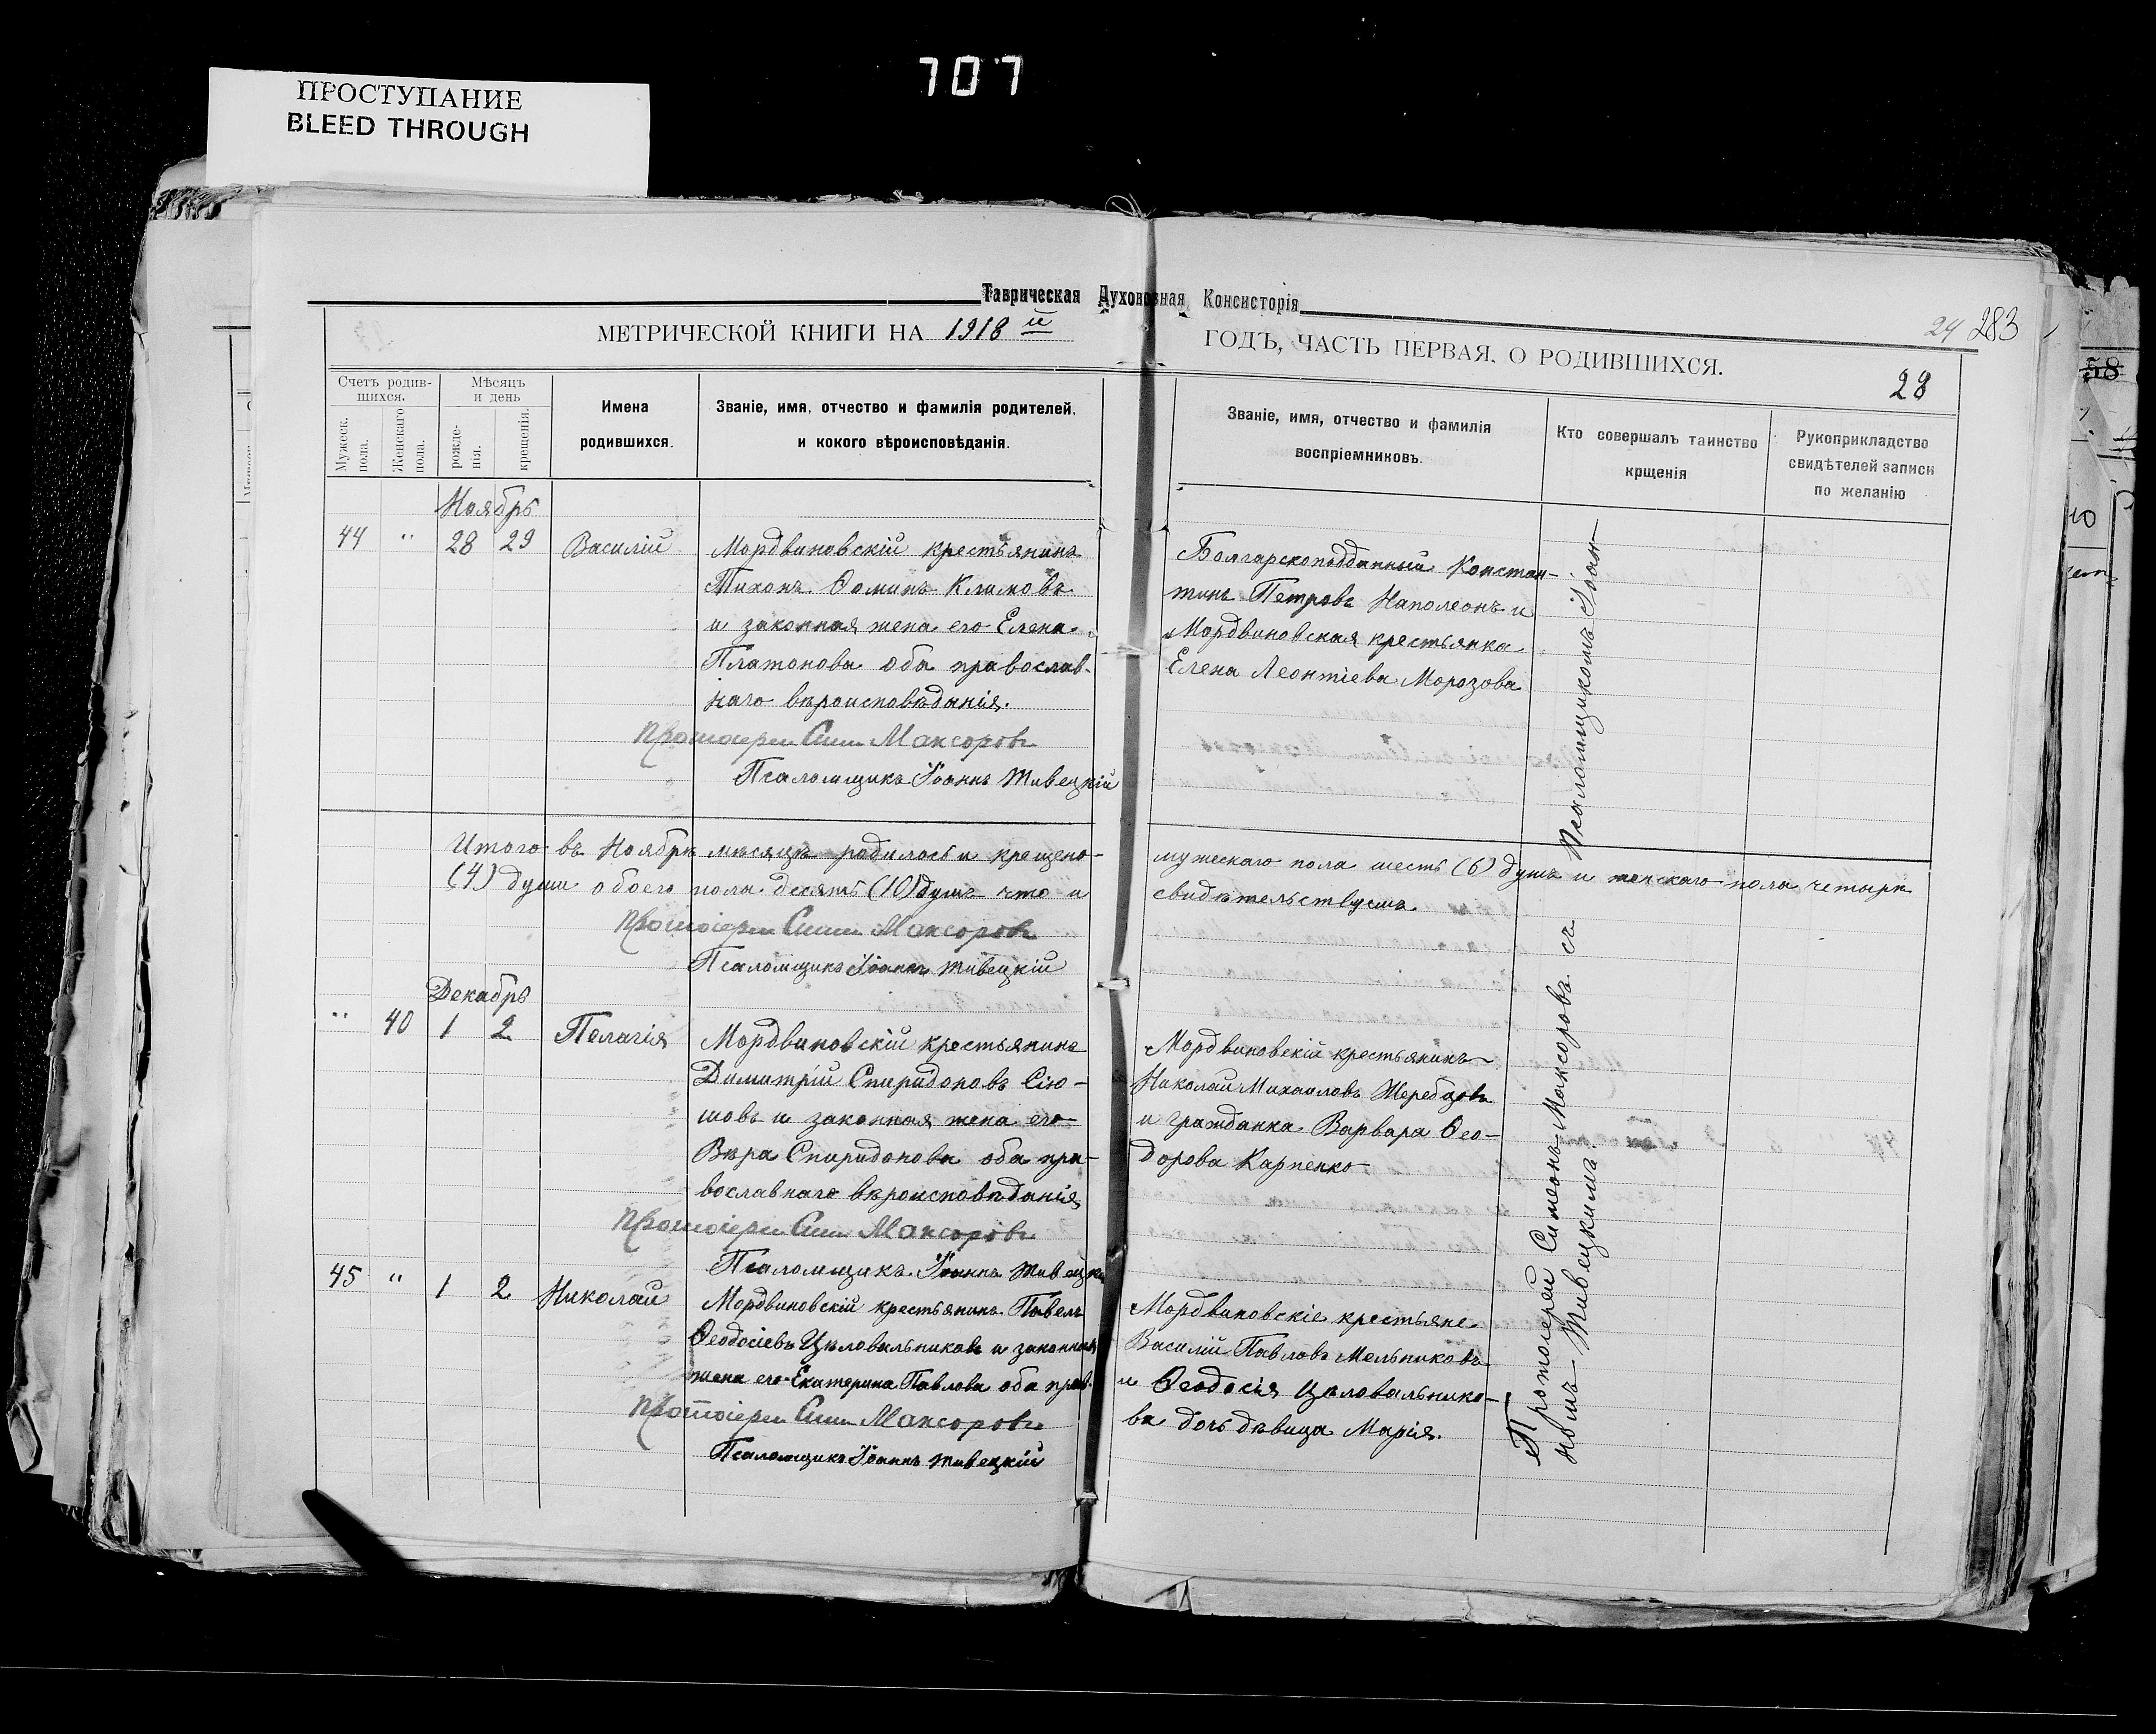 707
ПРОСТУПАНИЕ
BLEED THROUGH
Таврическая Духовная Консисторія
МЕТРИЧЕСКОЙ КНИГИ НА 1918 й ГОДЪ, ЧАСТЬ ПЕРВАЯ, О РОДИВШИХСЯ.
24 283
28
58
Счетъ родив-
шихся.
Мужеск.
пола.
Женскаго
пола.
Мѣсяцъ
и день
рожде-
нія.
крещенія.
Имена
родившихся.
Званіе, имя, отчество и фамилія родителей,
и кокого вѣроисповѣданія.
Званіе, имя, отчество и фамилія
воспріемниковъ.
Кто совершалъ таинство
крщенія
Рукоприкладство
свидѣтелей записи
по желанію
Ноябрь
44 " 28 29 Василій
Мордвиновскій крестьянинъ
Тихонъ Ѳоминъ Климовъ
и законная жена его Елена
Платонова оба православ-
наго вѣроисповѣданія.
Протоіерей Сим Максоровъ
Псаломщикъ Іоаннъ Живецкій
Болгарскоподданный Констан-
тинъ Петровъ Наполеонъ и
Мордвиновская крестьянка
Елена Леонтіева Морозова
Итого въ Ноябрѣ мѣсяцѣ родилось и крещено мужескаго пола шесть (6) душъ и женскаго пола четыре
(4) души обоего пола десять (10) душъ что и свидѣтельствуемъ.
Протоіерей Сим Максоровъ
Псаломщикъ Іоаннъ Живецкій
Декабрь
" 40 1 2 Пелагія
Мордвиновскій крестьянинъ
Димитрій Спиридоновъ Сію-
шовъ и законная жена его
Вѣра Спиридонова оба пра-
вославнаго вѣроисповѣданія
Протоіерей Сим Максоровъ
Псаломщикъ Іоаннъ Живецкі
Мордвиновскій крестьянинъ
Николай Михаиловъ Жеребцовъ
и гражданка Варвара Ѳео-
дорова Карпенко
45 " 1 2 Николай
Мордвиновскій крестьянинъ Павелъ
Ѳеодосіевъ Цѣловальниковъ и законная
жена его Екатерина Павлова оба прав.
Протоіерей Сим Максоровъ
Псаломщикъ Іоаннъ Живецкій
Мордвиновскіе крестьяне
Василій Павловъ Мельниковъ
и Ѳеодосія Цѣловальнико-
ва дочь дѣвица Марія.
Протоіерей Симеонъ Максоровъ съ Псаломщикомъ Іоан-
номъ Живецкимъ.